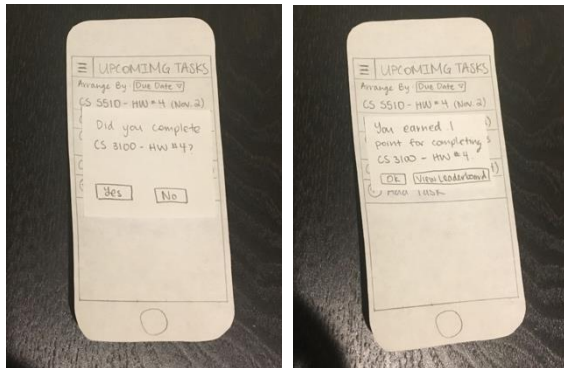 ☰ UPCOMIMG TASKS
Arrange By Due Date ▽
CS 5510 - HW #4 (Nov. 2)
Did you complete
CS 3100 - HW #4?
Yes No
☰ UPCOMIMG TASKS
Arrange By Due Date ▽
CS 5510 - HW #4 (Nov. 2)
You earned 1
point for completing
CS 3100 - HW #4.
OK View Leaderboard
Task